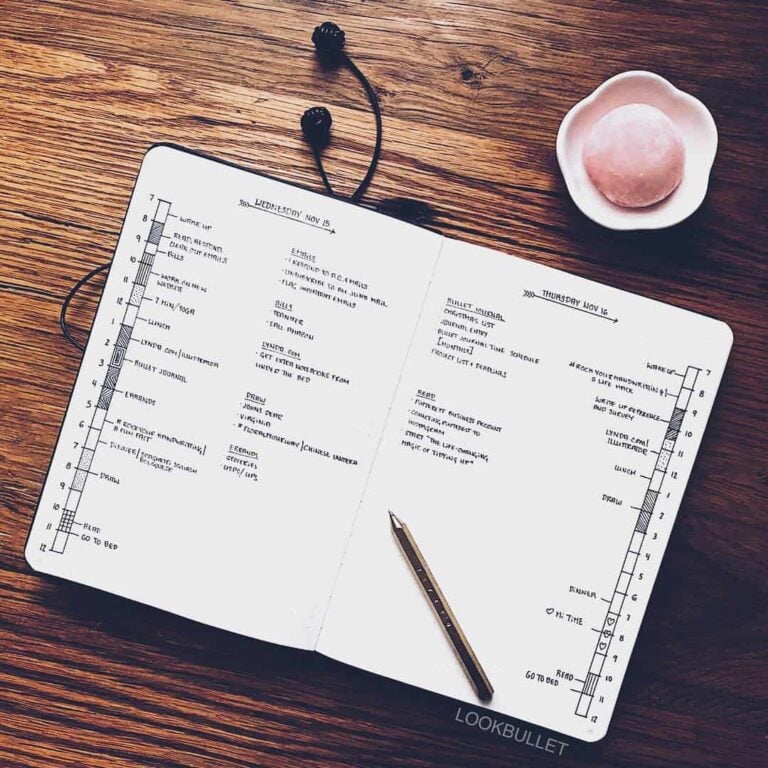 WEDNESDAY NOV 15
7
8
9
10
11
12
1
2
3
4
5
6
7
8
9
10
11
12
WAKE UP
READ, RESPOND,
CLEAN OUT EMAILS
BILLS
WORK ON NEW
WEBSITE
7 MIN/YOGA
LUNCH
LYNDA.COM/ILLUSTRATOR
BULLET JOURNAL
ERRANDS
#ROCKYOURHANDWRITING/
# FUN FACT
DINNER/SPAGHETTI SQUASH
BOLOGNESE
DRAW
READ
GO TO BED
EMAILS
· RESPOND TO ALL EMAILS
· UNSUBSCRIBE TO ALL JUNK MAIL
· FLAG IMPORTANT EMAILS
BILLS
· TRANSFER
· CALL AMAZON
LYNDA.COM
· GET EXTRA NOTEBOOKS FROM
UNDER THE BED
DRAW
· JOHN'S DEAR
· VIRGINIA
· #FLORALYOURWAY/CHINESE LANTERN
ERRANDS
· GROCERIES
· USPS/UPS
THURSDAY NOV 16
BULLET JOURNAL
CHRISTMAS LIST
JOURNAL ENTRY
BULLET JOURNAL TIME SCHEDULE
[MONTHLY]
PROJECT LIST + DEADLINES
READ
· PINTEREST BUSINESS ACCOUNT
· CONNECTING PINTEREST TO
INSTAGRAM
START "THE LIFE-CHANGING
MAGIC OF TIDYING UP"
WAKE UP
#ROCKYOURHANDWRITING/
A LIFE HACK
WRITE UP REFERENCE
AND SURVEY
LYNDA.COM/
ILLUSTRATOR
LUNCH
DRAW
DINNER
♡ MI TIME
READ
GO TO BED
7
8
9
10
11
12
1
2
3
4
5
6
7
8
9
10
11
12
LOOKBULLET